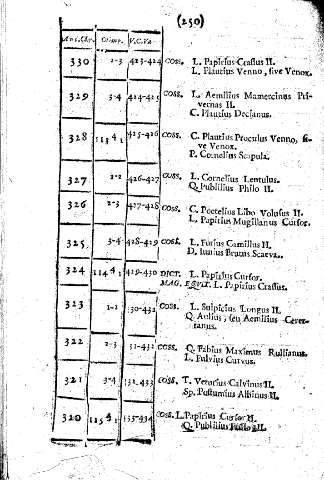 (250)
Ant. Chr. Olimp. V.C. Va
330 2-3 423-424 COSS. L. Papirius Crassus II.
L. Plautius Venno, sive Venox.
329 3-4 424-425 COSS. L. Aemilius Mamercinus Pri-
vernas II.
C. Plautius Decianus.
328 113 4 1 425-426 COSS. C. Plautius Proculus Venno, si-
ve Venox.
P. Cornelius Scapula.
327 1-2 426-427 COSS. L. Cornelius Lentulus.
Q. Publilius Philo II.
326 2-3 427-428 COSS. C. Poetelius Libo Volusus II.
L. Papirius Mugillanus Cursor.
325 3-4 428-429 COSS. L. Furius Camillus II.
D. Iunius Brutus Scaeva.
324 114 4 1 429-430 DICT. L. Papirius Cursor.
MAG. EQUIT. L. Papirius Crassus.
323 1-2 430-431 COSS. L. Sulpicius Longus II.
Q. Aulius, seu Aemilius Cerre-
tanus.
322 2-3 31-432 COSS. Q. Fabius Maximus Rullianus.
L. Fulvius Curvus.
321 3-4 432-433 COSS. T. Veturius Calvinus II.
Sp. Postumius Albinus II.
320 115 4 1 433-434 COSS. L. Papirius Cursor II.
Q. Publilius Philo III.